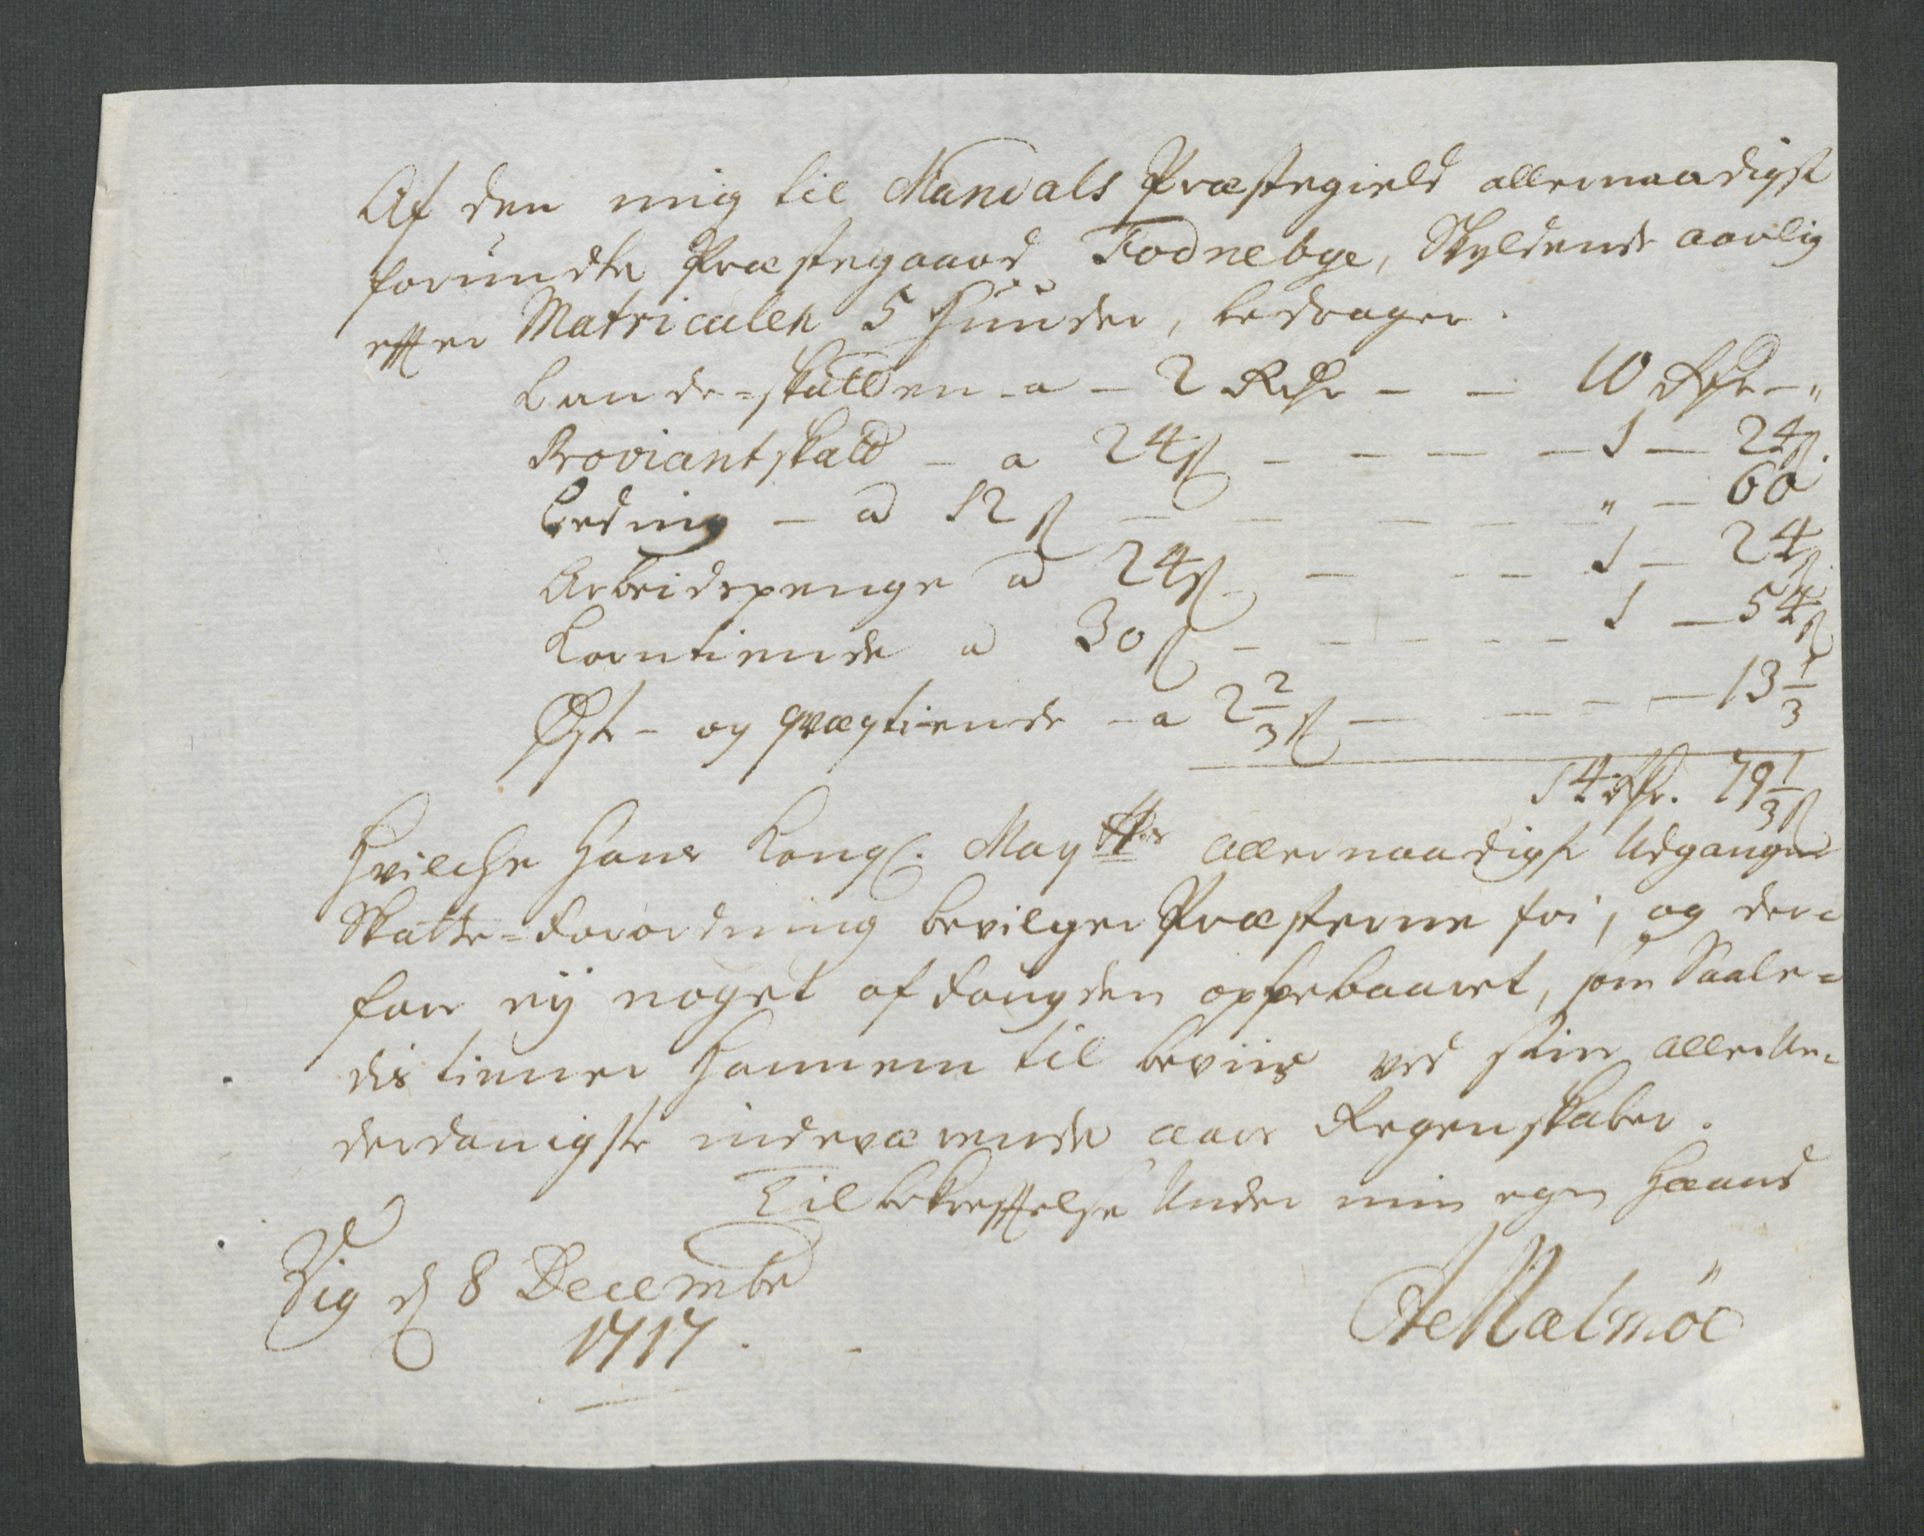 Af den mig til Mandals Præstegield allernaadigst
forundte Præstegaard, Fodnebye, Skyldende aarlig
effter Matriculen 5 Huuder, bedrager.
Lande-skatten - a - 2 Rdr - - 10 Rdr - "
Proviantskatt - a 24 ß - - - - 1 - 24 ß.
Leding - a 12 ß - - - - - " - 60
Arbeidspenge a 24 ß - - - 1 - 24 ß
Korntiende a 30 ß - - - - - 1 - 54 ß
Ost- og qvægtiende - a 2 2/3 ß - - - - 13 1/3
14 Rdr. 79 1/3 ß
Hvilche Hans Kongl. Mayts allernaadigst Udgangne
Skatte-Forordning bevilger Præsterne fri, og der-
for eÿ noget af Fougden oppebaaret, som Saale-
dis tiener Hannem til beviis ved sine allerUn-
derdanigste indeværende aars Regenskaber.
Til bekrefftelse Under min egen Haand
Vig d 8 Decembr
1717.
Malmöe